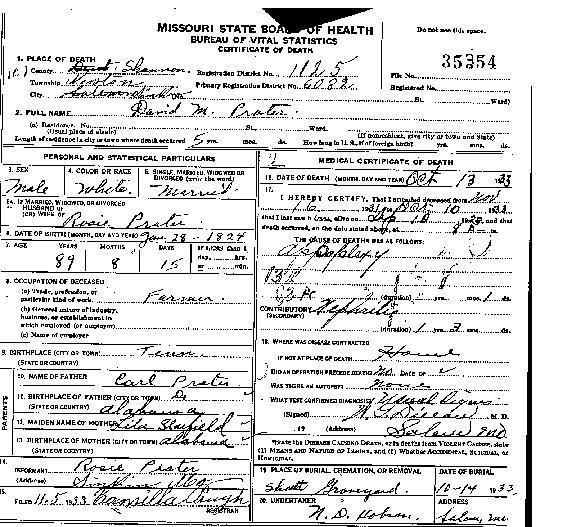 MISSOURI STATE BOARD OF HEALTH
BUREAU OF VITAL STATISTICS
CERTIFICATE OF DEATH
Do not use this space.
35354
1. PLACE OF DEATH
County Shannon Registration District No. 1125 File No.
Township Primary Registration District No. Registered No.
City St. Ward)
2. FULL NAME David M. Prater
(a) Residence. No. St. Ward.
(Usual place of abode) (If nonresident, give city or town and State)
Length of residence in city or town where death occurred 5 yrs. mos. ds. How long in U. S., if of foreign birth? yrs. mos. ds.
PERSONAL AND STATISTICAL PARTICULARS
3. SEX 4. COLOR OR RACE 5. SINGLE, MARRIED, WIDOWED OR DIVORCED (write the word)
Male White Married
5A. IF MARRIED, WIDOWED, OR DIVORCED
HUSBAND OF
(OR) WIFE OF Rosie Prater
6. DATE OF BIRTH (MONTH, DAY AND YEAR) Jan 28 - 1824
7. AGE YEARS MONTHS DAYS If LESS than 1 day, hrs. or min.
89 8 15
8. OCCUPATION OF DECEASED
(a) Trade, profession, or particular kind of work Farmer
(b) General nature of industry, business, or establishment in which employed (or employer)
(c) Name of employer
9. BIRTHPLACE (CITY OR TOWN) Tenn
(STATE OR COUNTRY)
PARENTS
10. NAME OF FATHER Carl Prater
11. BIRTHPLACE OF FATHER (CITY OR TOWN)
(STATE OR COUNTRY) Alabama
12. MAIDEN NAME OF MOTHER
13. BIRTHPLACE OF MOTHER (CITY OR TOWN) Alabama
(STATE OR COUNTRY)
14. INFORMANT Rosie Prater
(Address)
15. FILED 11-5 1933 Camilla
REGISTRAR
MEDICAL CERTIFICATE OF DEATH
16. DATE OF DEATH (MONTH, DAY AND YEAR) Oct 13 33
17.
I HEREBY CERTIFY, That I attended deceased from Nov
16 1931, to Oct 10 1933
that I last saw h alive on
death occurred, on the date stated above, at 8 A m.
THE CAUSE OF DEATH WAS AS FOLLOWS:
Apoplexy
(duration) yrs. mos. 1 ds.
CONTRIBUTORY Nephritis
(SECONDARY)
(duration) 1 yrs. 3 mos. ds.
18. WHERE WAS DISEASE CONTRACTED
IF NOT AT PLACE OF DEATH Home
DID AN OPERATION PRECEDE DEATH? No DATE OF
WAS THERE AN AUTOPSY? None
WHAT TEST CONFIRMED DIAGNOSIS? Usual Signs
(Signed) M. D.
, 19 (Address) Salem Mo
*State the DISEASE CAUSING DEATH, or in deaths from VIOLENT CAUSES, state (1) MEANS AND NATURE OF INJURY, and (2) whether ACCIDENTAL, SUICIDAL, or HOMICIDAL.
19. PLACE OF BURIAL, CREMATION, OR REMOVAL DATE OF BURIAL
Graveyard. 10-14 1933
20. UNDERTAKER ADDRESS
N. D. Salem, Mo